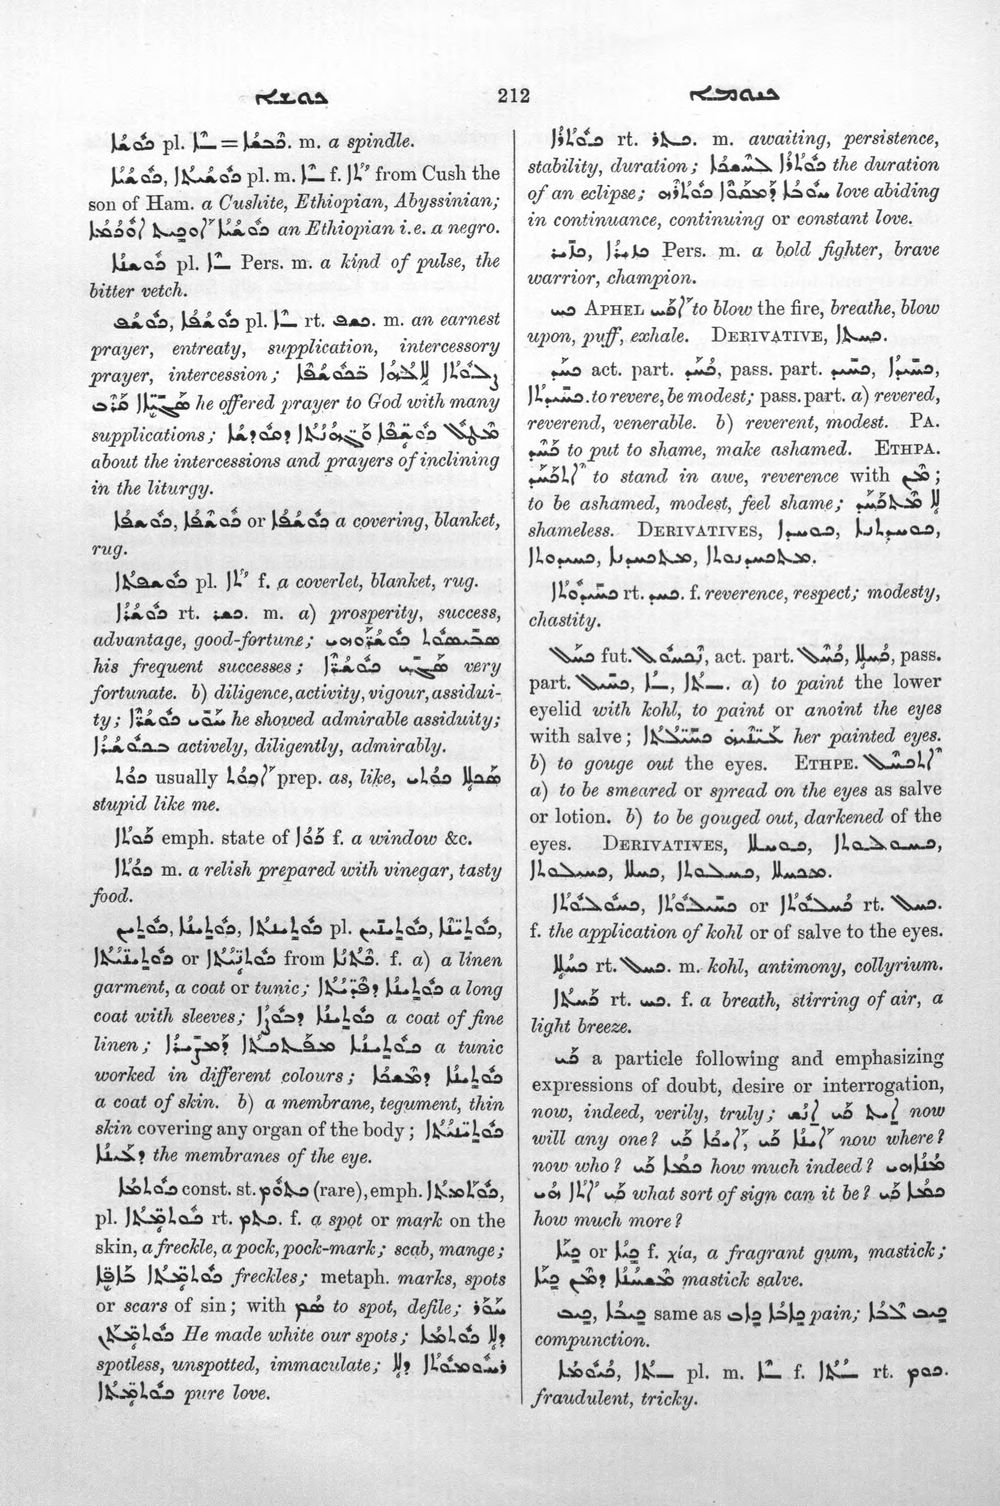 ܟܘܫܐ 212 ܟܘܡܐ
ܟܘܫܐ pl. ܐ = ܟܒܫܐ. m. a spindle.
ܟܘܫܝܐ, ܟܘܫܝܬܐ pl. m. ܐ f. ܬܐ from Cush the
son of Ham. a Cushite, Ethiopian, Abyssinian;
ܟܘܫܝܐ ܐܘܟܝܬ ܐܘܟܡܐ an Ethiopian i.e. a negro.
ܟܘܫܢܐ pl. ܐ Pers. m. a kind of pulse, the
bitter vetch.
ܟܘܫܦ, ܟܘܫܦܐ pl. ܐ rt. ܟܫܦ. m. an earnest
prayer, entreaty, supplication, intercessory
prayer, intercession; ܨܠܘܬܐ ܠܐܠܗܐ ܒܟܘܫܦܐ
ܣܓܝܐܐ ܩܪܒ he offered prayer to God with many
supplications; ܡܛܠ ܟܘܫܦܐ ܘܓܗܢܬܐ ܕܩܘܕܫܐ
about the intercessions and prayers of inclining
in the liturgy.
ܟܘܫܦܐ, ܟܘܫܦܐ or ܟܘܫܦܐ a covering, blanket,
rug.
ܟܘܫܦܬܐ pl. ܬܐ f. a coverlet, blanket, rug.
ܟܘܫܪܐ rt. ܟܫܪ. m. a) prosperity, success,
advantage, good-fortune; ܟܘܫܪܘܗܝ
his frequent successes; ܣܓܝ ܟܘܫܪܐ very
fortunate. b) diligence, activity, vigour, assidui-
ty; ܚܘܝ ܟܘܫܪܐ he showed admirable assiduity;
ܒܟܘܫܪܐ actively, diligently, admirably.
ܟܘܬ usually ܐܟܘܬ prep. as, like, ܣܟܠܐ ܟܘܬܝ
stupid like me.
ܟܘܬܐ emph. state of ܟܘܐ f. a window &c.
ܟܘܬܐ m. a relish prepared with vinegar, tasty
food.
ܟܘܬܝܢ, ܟܘܬܝܢܐ, ܟܘܬܝܢܬܐ pl. ܟܘܬܝܢܝܢ, ܟܘܬܝܢܐ,
ܟܘܬܝܢܝܬܐ or ܟܘܬܝܢܬܐ from ܟܬܢܐ. f. a) a linen
garment, a coat or tunic; ܟܘܬܝܢܐ ܕܦܕܝܬܐ a long
coat with sleeves; ܟܘܬܝܢܐ ܕܒܘܨܐ a coat of fine
linen; ܟܘܬܝܢܐ ܡܦܬܟܬܐ ܘܡܨܝܪܐ a tunic
worked in different colours; ܟܘܬܝܢܐ ܕܡܫܟܐ
a coat of skin. b) a membrane, tegument, thin
skin covering any organ of the body; ܟܘܬܝܢܝܬܐ
ܕܥܝܢܐ the membranes of the eye.
ܟܘܬܡܐ const. st. ܟܬܘܡ (rare), emph. ܟܘܬܡܬܐ,
pl. ܟܘܬܡܬܐ rt. ܟܬܡ. f. a spot or mark on the
skin, a freckle, a pock, pock-mark; scab, mange;
ܟܘܬܡܬܐ freckles; metaph. marks, spots
or scars of sin; with ܣܡ to spot, defile; ܚܘܪ
ܟܘܬܡܬܢ He made white our spots; ܕܠܐ ܟܘܬܡܐ
spotless, unspotted, immaculate; ܪܚܘܡܘܬܐ ܕܠܐ
ܟܘܬܡܬܐ pure love.
ܟܘܬܪܐ rt. ܟܬܪ. m. awaiting, persistence,
stability, duration; ܟܘܬܪܐ the duration
of an eclipse; ܚܘܒܐ ܕܡܩܘܐ ܒܟܘܬܪܗ love abiding
in continuance, continuing or constant love.
Pers. m. a bold fighter, brave
warrior, champion.
ܟܚ APHEL ܐܟܚ to blow the fire, breathe, blow
upon, puff, exhale. DERIVATIVE, ܟܚܬܐ.
ܟܚܕ act. part. ܟܚܕ, pass. part. ܟܚܝܕ, ܟܚܝܕܐ,
ܟܚܝܕܬܐ. to revere, be modest; pass. part. a) revered,
reverend, venerable. b) reverent, modest. PA.
ܟܚܕ to put to shame, make ashamed. ETHPA.
ܐܬܟܚܕ to stand in awe, reverence with ܡܢ;
to be ashamed, modest, feel shame; ܠܐ ܡܬܟܚܕ
shameless. DERIVATIVES, ܟܘܚܕܐ, ܟܘܚܕܬܢܐ,
ܟܚܝܕܘܬܐ, ܡܬܟܚܕܢܐ, ܡܬܟܚܕܢܘܬܐ.
ܟܚܝܕܘܬܐ rt. ܟܚܕ. f. reverence, respect; modesty,
chastity.
ܟܚܠ fut. ܢܟܚܘܠ, act. part. ܟܚܠ, ܟܚܠܐ, pass.
part. ܟܚܝܠ, ܐ, ܬܐ. a) to paint the lower
eyelid with kohl, to paint or anoint the eyes
with salve; ܥܝܢܝܗ ܟܚܝܠܬܐ her painted eyes.
b) to gouge out the eyes. ETHPE. ܐܬܟܚܠ
a) to be smeared or spread on the eyes as salve
or lotion. b) to be gouged out, darkened of the
eyes. DERIVATIVES, ܟܘܚܠܐ, ܟܚܘܠܘܬܐ,
ܟܚܝܠܘܬܐ, ܟܚܠܐ, ܟܚܠܘܬܐ, ܡܟܚܠܐ.
ܟܚܘܠܘܬܐ, ܟܚܝܠܘܬܐ or ܟܚܠܘܬܐ rt. ܟܚܠ.
f. the application of kohl or of salve to the eyes.
ܟܚܠܐ rt. ܟܚܠ. m. kohl, antimony, collyrium.
ܟܚܬܐ rt. ܟܚ. f. a breath, stirring of air, a
light breeze.
ܟܝ a particle following and emphasizing
expressions of doubt, desire or interrogation,
now, indeed, verily, truly; ܐܝܬ ܟܝ ܐܢܫ now
will any one? ܐܝܟܐ ܟܝ, ܐܝܢܐ ܟܝ now where?
now who? ܟܡܐ ܟܝ how much indeed? ܡܢܐ ܗܝ
ܟܝ ܐܬܐ ܗܝ what sort of sign can it be? ܟܡܐ ܟܝ
how much more?
ܟܝܐ or ܟܝܐ f. χία, a fragrant gum, mastick;
ܡܫܚܢܐ ܕܡܢ ܟܝܐ mastick salve.
ܟܝܒ, ܟܝܒܐ same as ܟܐܒ ܟܐܒܐ pain; ܟܝܒ ܠܒܐ
compunction.
ܟܝܘܡܐ, ܬܐ pl. m. ܐ f. ܬܐ rt. ܟܘܡ.
fraudulent, tricky.